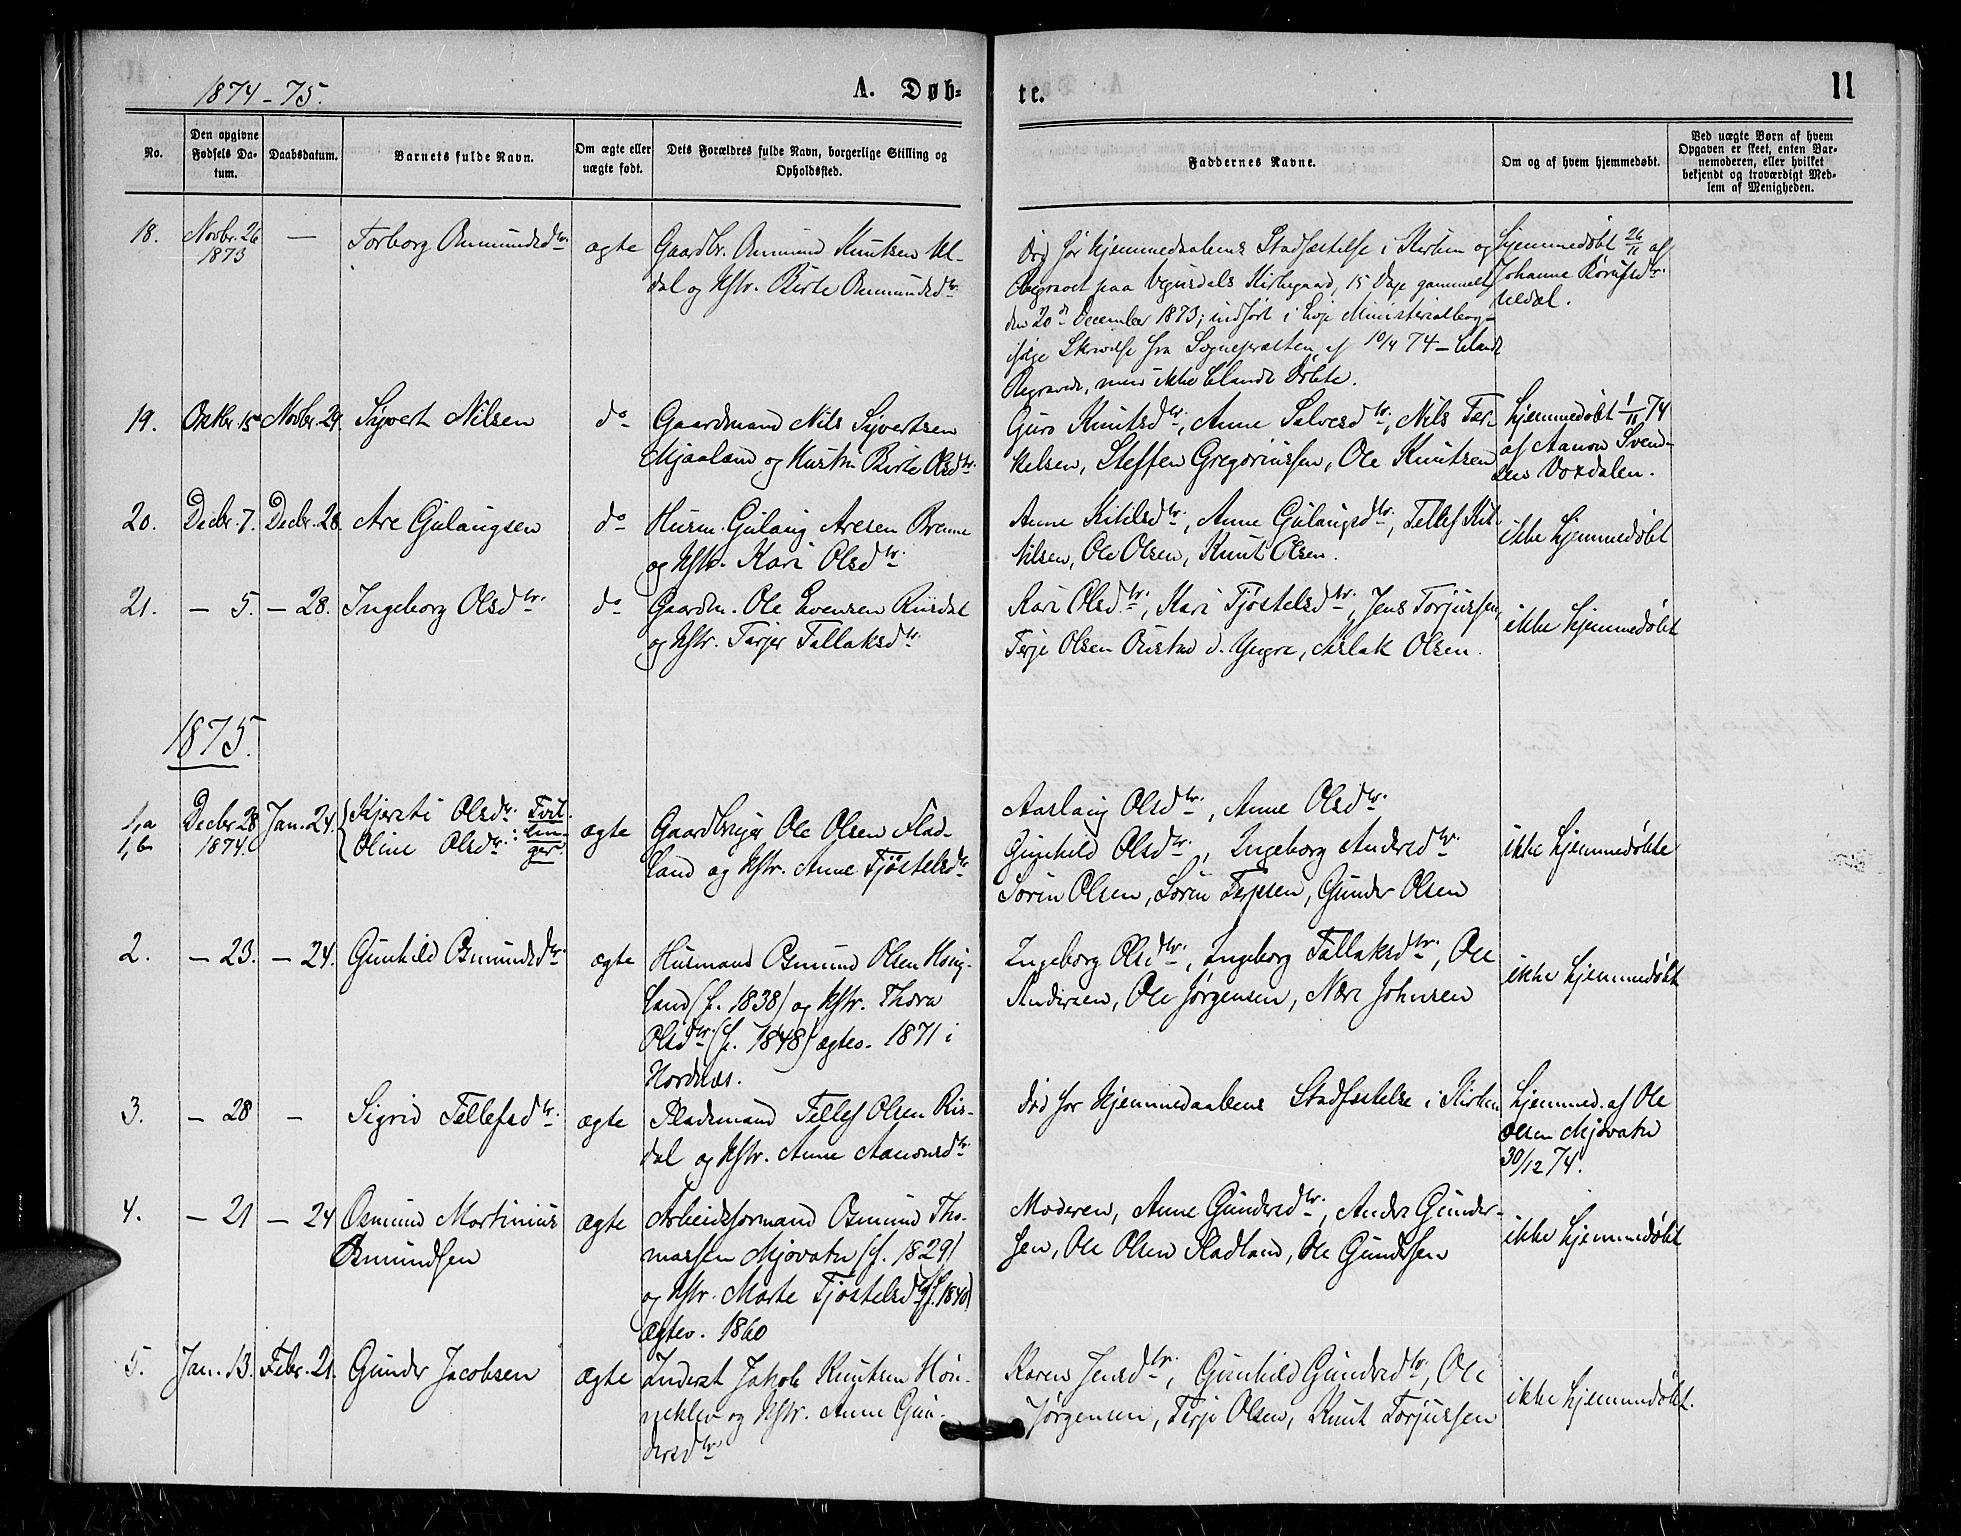 1874-75.
A. Døb-
te.
11
No.
Den opgivne Fødsels Da-tum.
Daabsdatum.
Barnets fulde Navn.
Om ægte eller uægte født.
Dets Forældres fulde Navn, borgerlige Stilling og Opholdssted.
Faddernes Navne.
Om og af hvem hjemmedøbt.
Ved uægte Børn af hvem Opgaven er skeet, enten Bar-nemoderen, eller hvilket bekjendt og troværdigt Med-lem af Menigheden.
18. Novbr. 26 1873 — Torborg Osmundsdtr. ægte
Gaardbr. Osmund Knutsen
dal og Hstr. Birte Osmundsdtr.
Død før Hjemmedaabens Stadfæstelse i Kirken og
Begravet paa Vegusdals Kirkegaard, 15 Dage gammelt
den 20de December 1873; indført i Ministerialbog
ifølge Skrivelse fra Sognepræsten af 10/4 74 - blandt
Begravede, men ikke blandt Døbte.
Hjemmedøbt 26/11 af
Johanne
19. Oktbr. 15 Novbr. 29. Syvert Nilsen do
Gaardmand Nils Syvertsen
Mjaaland og Hustru Birte Olsdtr.
Guro Knutsdtr., Anne Salvesdtr., Nils Ter-
kelsen, Steffen Gregoriussen, Ole Knutsen
Hjemmedøbt 1/11 74
af Aanon Svend-
sen Voxdalen.
20. Decbr. 7. Decbr. 28. Are Gulaugsen do
Husm. Gulaug Aresen Brenne
og Hstr. Kari Olsdtr.
Anne Kitilsdtr., Anne Gulaugsdtr., Tellef Kit-
ilsen, Ole Olsen, Knut Olsen.
ikke hjemmedøbt
21. — 5. — 28. Ingeborg Olsdtr. do
Gaardm. Ole Evensen Riisdal
og Hstr. Tarjer Tallaksdtr.
Kari Olsdtr., Kari Tjøstelsdtr., Jens Torjussen,
Terje Olsen d. Yngre, Aslak Olsen.
ikke hjemmedøbt
1875.
1,a
1,b
Decbr. 28 1874. Jan. 24.
Kjersti Olsdtr. Tvil-
Oline Olsdtr.: lin-
ger.
ægte
Gaardbruger Ole Olsen Flad-
land og Hstr. Anne Tjøstelsdtr.
Aaslaug Olsdtr., Anne Olsdtr.
Gunhild Olsdtr., Ingeborg Andresdtr.
Søren Olsen, Søren Terjesen, Gunder Olsen
ikke hjemmedøbte
2. — 23. — 24. Gunhild Osmundsdtr. ægte
Husmand Osmund Olsen Høig-
land (f. 1838) og Hstr. Thora
Olsdtr. (f. 1848) ægtev. 1871 i
Hordnæs.
Ingeborg Olsdtr., Ingeborg Tallaksdtr., Ole
Andersen, Ole Jørgensen, Nære Johnsen
ikke hjemmedøbt
3. — 28 — Sigrid Tellefsdtr. ægte
Pladsmand Tellef Olsen Ris-
dal og Hstr. Anne Aanonsdtr.
Død før Hjemmedaabens Stadfæstelse i Kirken
Hjemmed. af Ole
Olsen Mjovatn
30/12 74.
4. — 21 — 24 Osmund Martinius
Osmundsen
ægte
Arbeidsformand Osmund Tho-
massen Mjovatn (f. 1829)
og Hstr. Marte Tjøstelsdtr. (f. 1840)
Ægtev. 1860
Moderen, Anne Gundersdtr., Anders Gunder-
sen, Ole Olsen Fladland, Ole Gundersen
ikke hjemmedøbt
5. Jan. 13. Febr. 21. Gunder Jacobsen ægte
Inderst Jakob Knutsen Høn-
neklev og Hstr. Anne Gun-
dersdtr.
Karen Jensdtr., Gunhild Gundersdtr., Ole
Jørgensen, Terje Olsen, Knut Torjussen
ikke hjemmedøbt.